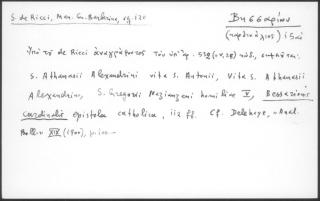 S. de Ricci, Man. Gr. Barberini, sg. 120
Βησσαρίων
(καρδινάλιος) 15αἰ
Ὑπὸ τοῦ de Ricci ἀναγράφεται τῶν ὑπ' ἀρ. 592 (VI, 22) κῶδ.
S. Athanasii Alexandrini vita s. Antonii, Vita s. Athanasii
Alexandrini, S. Gregorii Nazianzeni homiliae V, Bessarionis
Cardinalis epistola catholica, 112 ff. Cf. Delehaye, Anal.
Boll. XIX (1900),